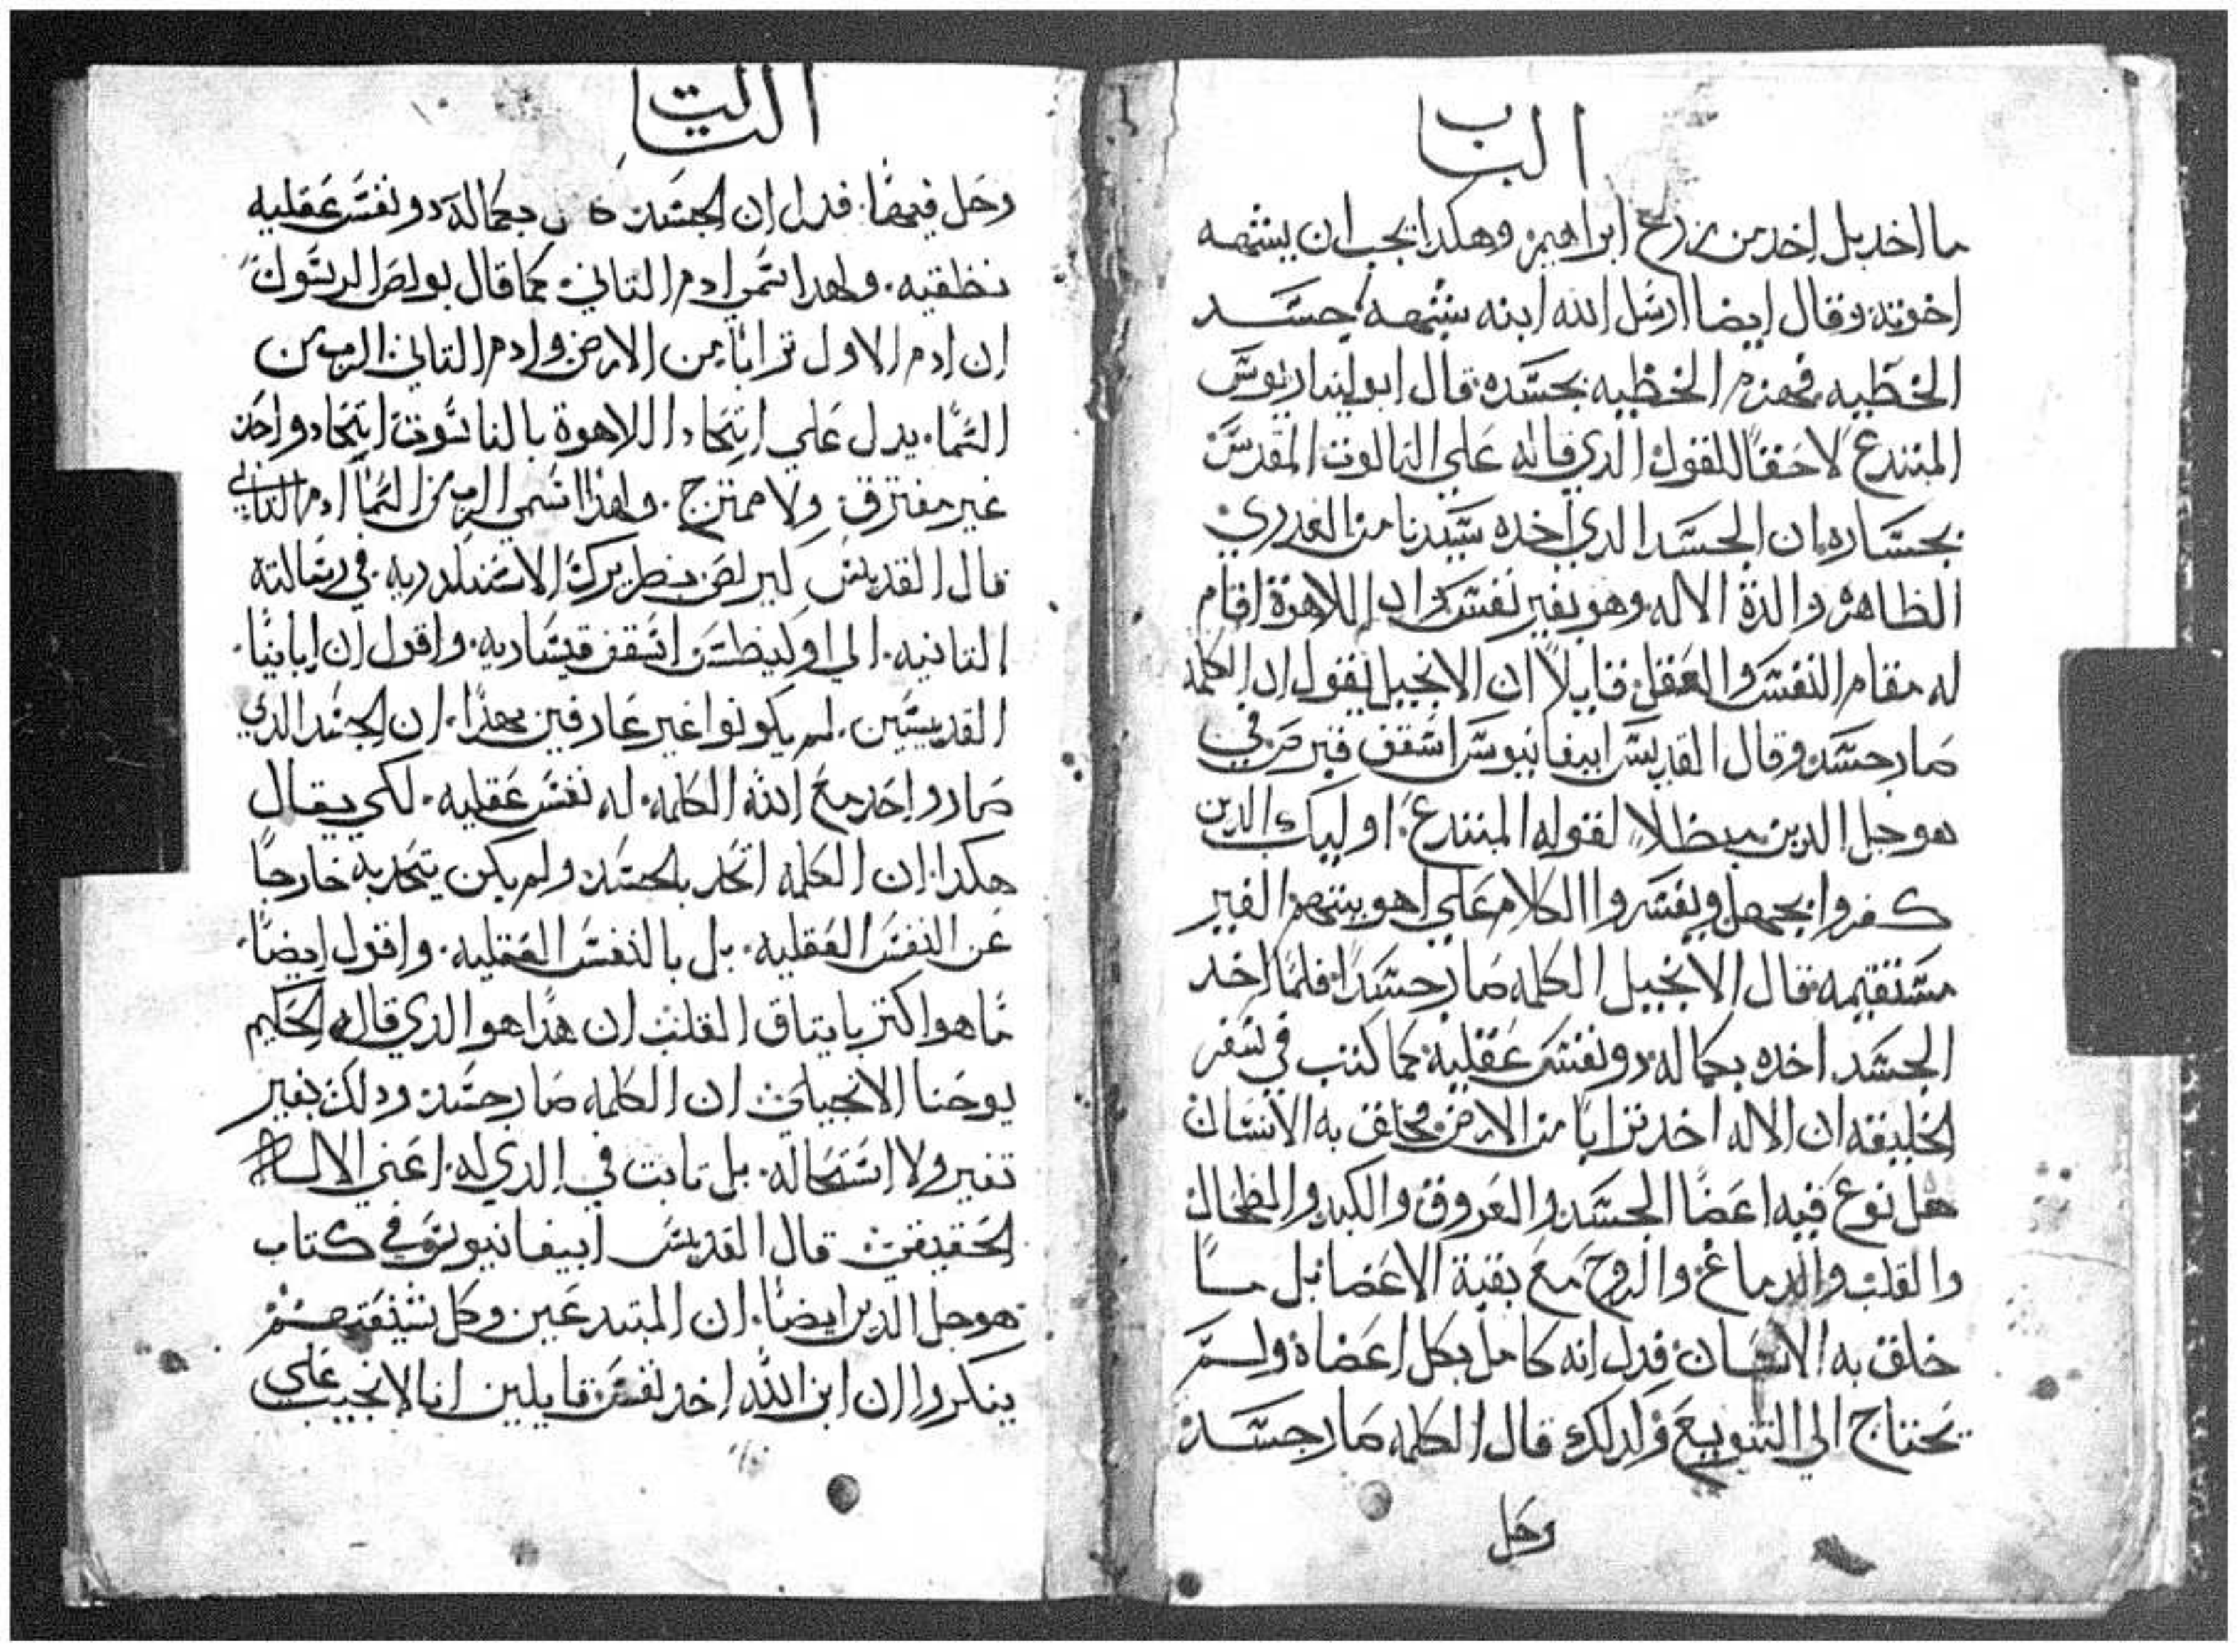 الباب
ما اخد بل اخد من زرع ابراهيم وهكدا يجب ان يشبه
اخوته وقال ايضا ارسل الله ابنه بشبه جسد
الخطيه فهزم الخطيه بجسده قال ابوليناريوس
المبتدع لاحقا للقول الدي قاله علي التالوت المقدس
بجساره ان الجسد الدي اخده سيدنا من العدري
الطاهره والدة الاله وهو بغير نفس وان اللاهوة اقام
له مقام النفس والعقل قايلا ان الانجيل يقول ان الكلمه
صار جسد وقال القديس ابيفانيوس اسقف قبرص في
هوجل الدين مبطلا لقوله المبتدع اوليك الدين
كفروا بجهل ويفسروا الكلام علي اهويتهم الغير
مستقيمه قال الانجيل الكلمه صار جسدا فلما اخد
الجسد اخده بكماله دو نفس عقليه كما كتب في سفر
الخليقه ان الاله اخد ترابا من الارض فخلق به الانسان
هل نوع فيه اعضا الجسد والعروق والكبد والطحال
والقلب والدماغ والروح مع بقية الاعضا بل لما
خلق به الانسان فدل انه كامل بكل اعضاه ولم
يحتاج الي التنويع ولدلك قال الكلمه صار جسد
وحل
التالت
وحل فيهما فدل ان الجسد بكماله دو نفس عقليه
نطقيه ولهدا سمي ادم التاني كما قال بولص الرسول
ان ادم الاول ترابا من الارض وادم التاني الرب من
السما يدل علي اتحاد اللاهوة بالناسوت اتحاد واحد
غير مفترق ولا ممتزج ولهدا سمي الرب من السما ادم التاني
قال القديس كيرلص بطريرك الاسكندريه في رسالته
التانيه الي اوكينطس اسقف قيساريه واقول ان ابايتا
القديسين لم يكونوا غير عارفين بهدا ان الجسد الدي
صار واحد مع الله الكلمه له نفس عقليه لكي يقال
هكدا ان الكلمه اتحد بالجسد ولم يكن يتحد به خارجا
عن النفس العقليه بل بالنفس العقليه واقول ايضا
ما هو اكتر باتياق القلب ان هدا هو الدي قاله الحكيم
يوحنا الانجيلي ان الكلمه صار جسد ودلك بغير
تغير ولا استحاله بل تابت في الدي له اعني الاله
الحقيقي قال القديس ابيفانيوس في كتاب
هوجل الدين ايضا ان المبتدعين وكل شيعتهم
ينكروا ان ابن الله اخد نفس قايلين ان الانجيب علي